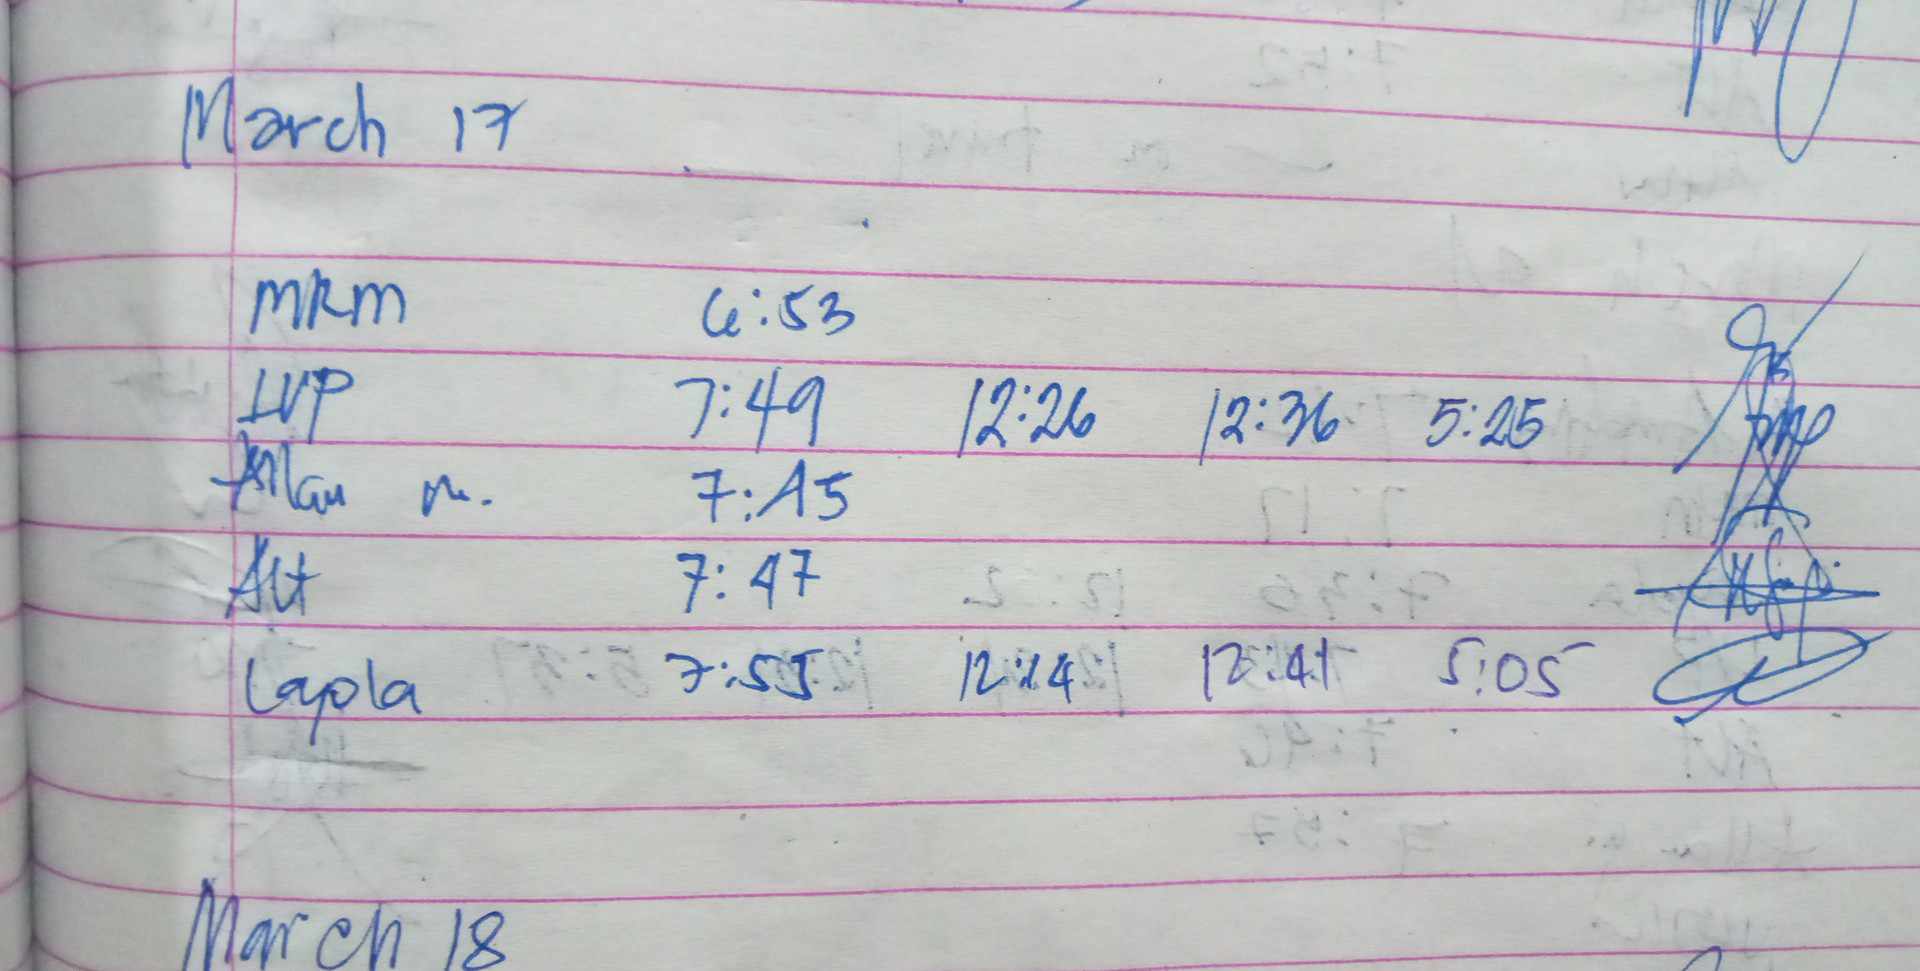 March 17
MRM 6:53
IVP 7:49 12:26 12:36 5:25
Allan m. 7:45
Alt 7:47
Layola 7:55 12:14 12:41 5:05
March 18